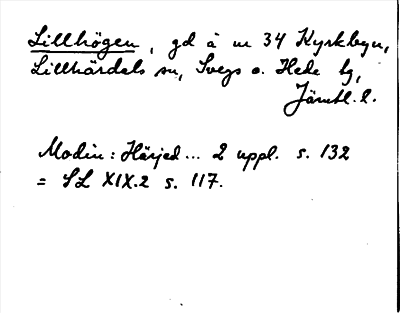 Lillhögen, gd å nr 34 Kyrkbyn,
Lillhärdals sn, Svegs o. Hede tg,
Jämtl. l.
Modin: Härjed... 2 uppl. s. 132
= SL XIX.2 s. 117.